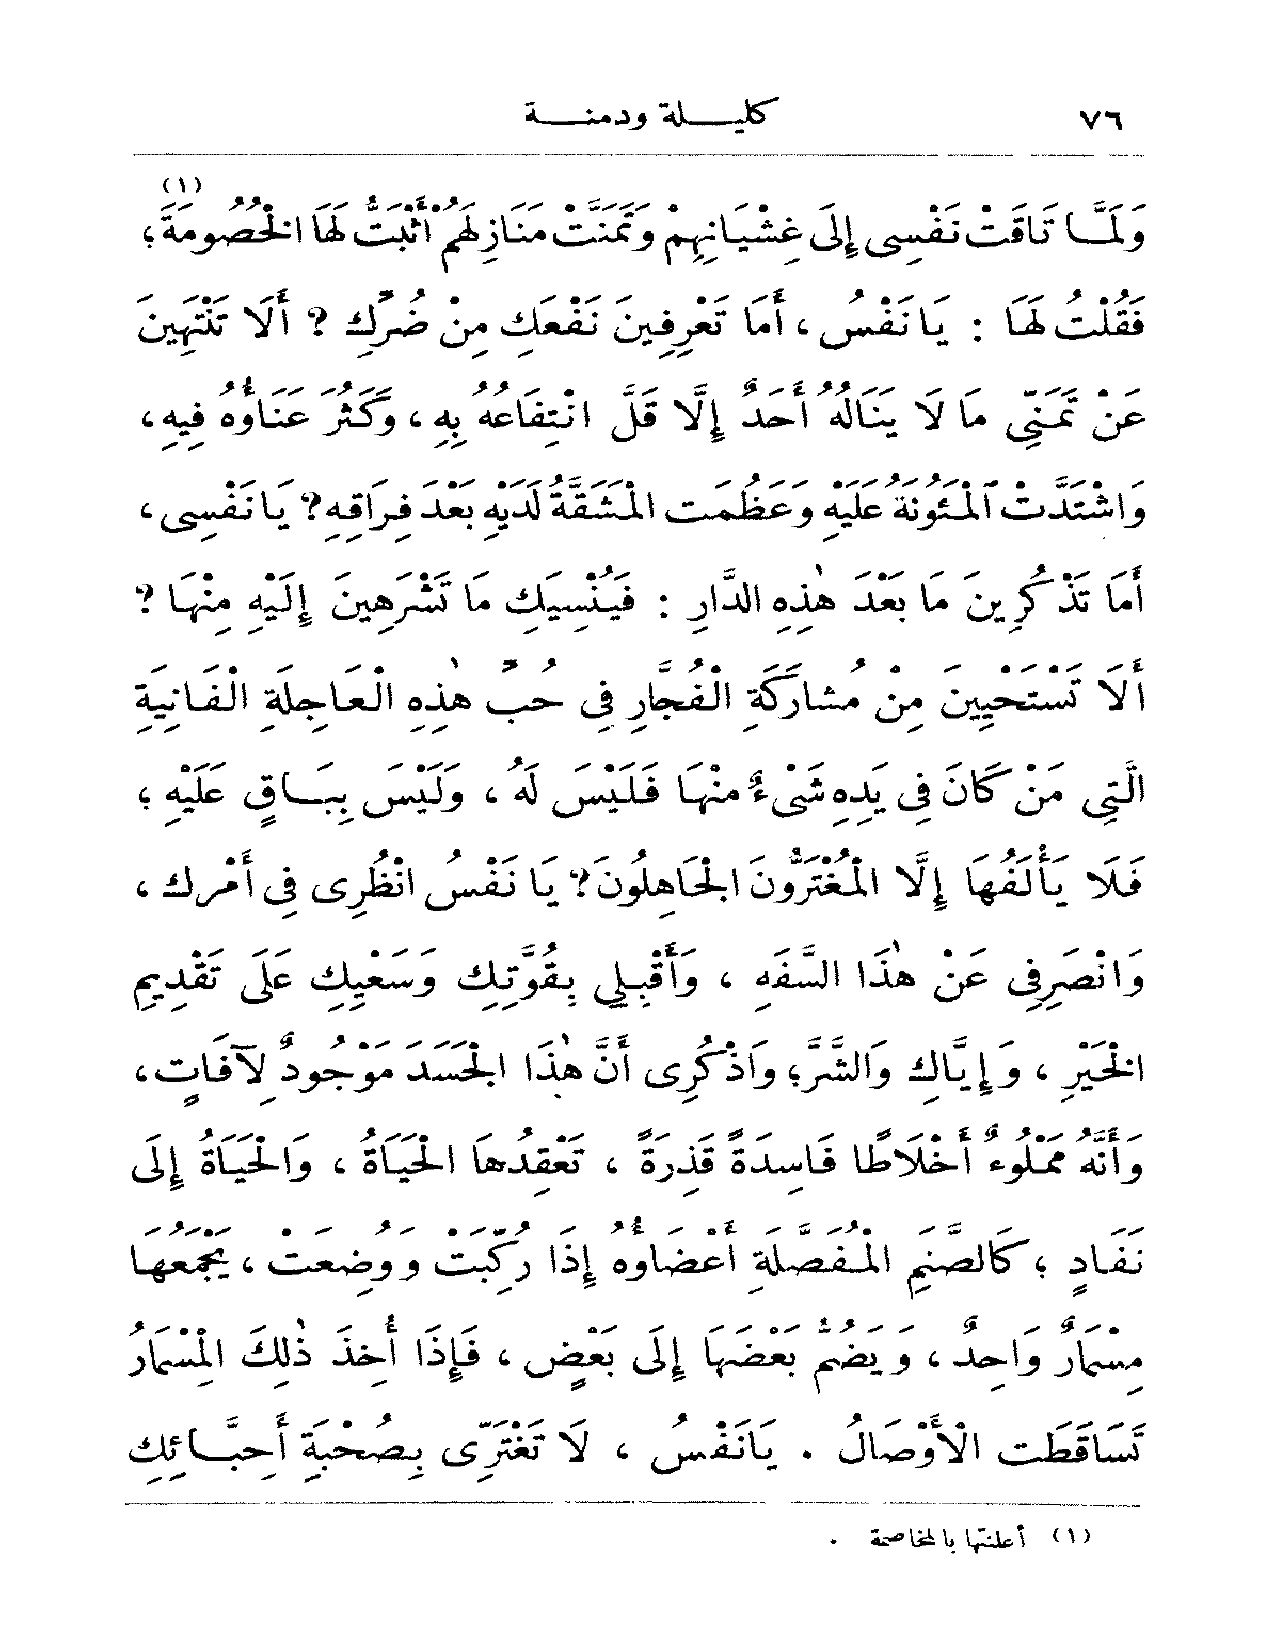 ٧٦ كليلة ودمنة
وَلَمَّا تَاقَتْ نَفْسِى إِلَى غِشْيَانِهِمْ وَتَمَنَّتْ مَنَازِلَهُمْ أَثْبَتُّ لَهَا الْخُصُومَةَ (١)؛
فَقُلْتُ لَهَا : يَا نَفْسُ، أَمَا تَعْرِفِينَ نَفْعَكِ مِنْ ضُرِّكِ ؟ أَلَا تَنْتَهِينَ
عَنْ تَمَنِّى مَا لَا يَنَالُهُ أَحَدٌ إِلَّا قَلَّ انْتِفَاعُهُ بِهِ، وَكَثُرَ عَنَاؤُهُ فِيهِ،
وَاشْتَدَّتْ الْمَئُونَةُ عَلَيْهِ وَعَظُمَتِ الْمَشَقَّةُ لَدَيْهِ بَعْدَ فِرَاقِهِ؟ يَا نَفْسِى،
أَمَا تَذْكُرِينَ مَا بَعْدَ هٰذِهِ الدَّارِ : فَيُنْسِيَكِ مَا تَشْرَهِينَ إِلَيْهِ مِنْهَا ؟
أَلَا تَسْتَحِيِينَ مِنْ مُشَارَكَةِ الْفُجَّارِ فِى حُبِّ هٰذِهِ الْعَاجِلَةِ الْفَانِيَةِ
الَّتِى مَنْ كَانَ فِى يَدِهِ شَىْءٌ مِنْهَا فَلَيْسَ لَهُ، وَلَيْسَ بِبَاقٍ عَلَيْهِ؛
فَلَا يَأْلَفُهَا إِلَّا الْمُغْتَرُّونَ الْجَاهِلُونَ؟ يَا نَفْسُ انْظُرِى فِى أَمْرِكِ،
وَانْصَرِفِى عَنْ هٰذَا السَّفَهِ، وَأَقْبِلِى بِقُوَّتِكِ وَسَعْيِكِ عَلَى تَقْدِيمِ
الْخَيْرِ، وَإِيَّاكِ وَالشَّرَّ؛ وَاذْكُرِى أَنَّ هٰذَا الْجَسَدَ مَوْجُودٌ لِآفَاتٍ،
وَأَنَّهُ مَمْلُوءٌ أَخْلَاطًا فَاسِدَةً قَذِرَةً، تَعْقِدُهَا الْحَيَاةُ، وَالْحَيَاةُ إِلَى
نَفَادٍ؛ كَالصَّنَمِ الْمُفَصَّلَةِ أَعْضَاؤُهُ إِذَا رُكِّبَتْ وَوُضِعَتْ، يَجْمَعُهَا
مِسْمَارٌ وَاحِدٌ، وَيَضُمُّ بَعْضَهَا إِلَى بَعْضٍ، فَإِذَا أُخِذَ ذٰلِكَ الْمِسْمَارُ
تَسَاقَطَتِ الْأَوْصَالُ . يَانَفْسُ، لَا تَغْتَرِّى بِصُحْبَةِ أَحِبَّائِكِ
(١) أعلنتها بالمخاصمة .